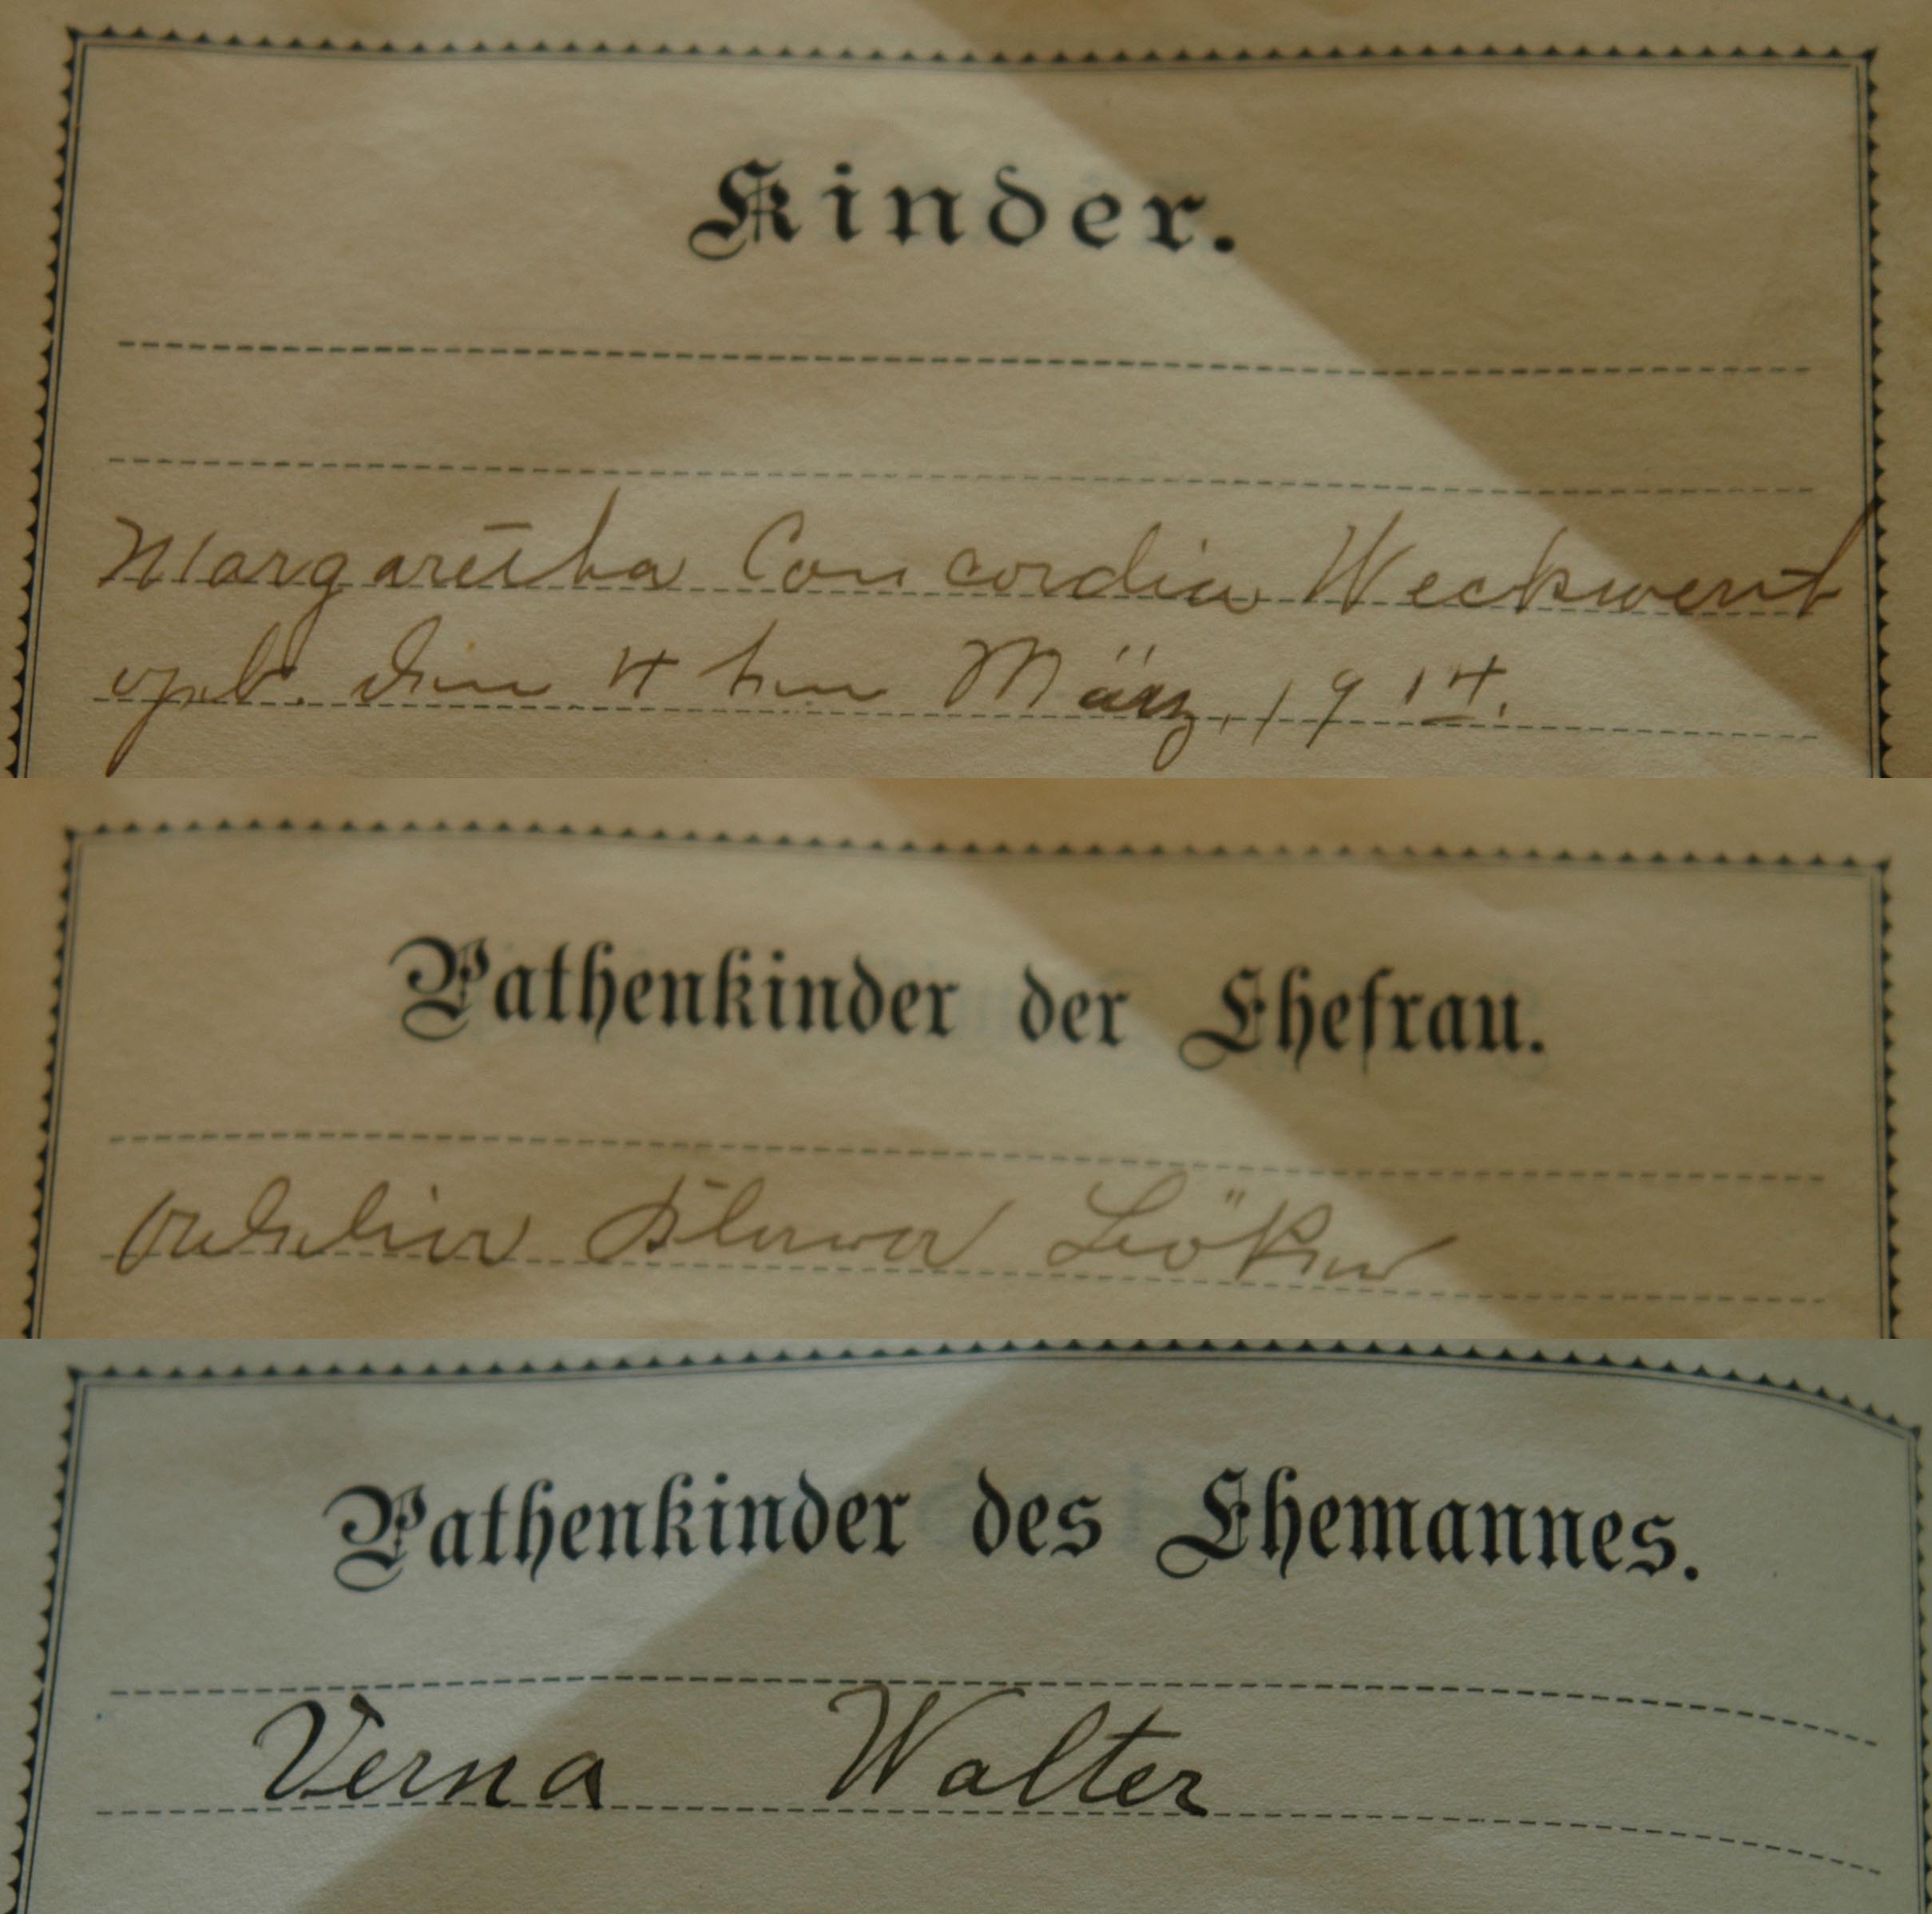 Kinder.
Margaretha Concordia Weckwert
geb. den 4 ten März, 1914.
Pathenkinder der Ehefrau.
Pathenkinder des Ehemannes.
Verna Walter